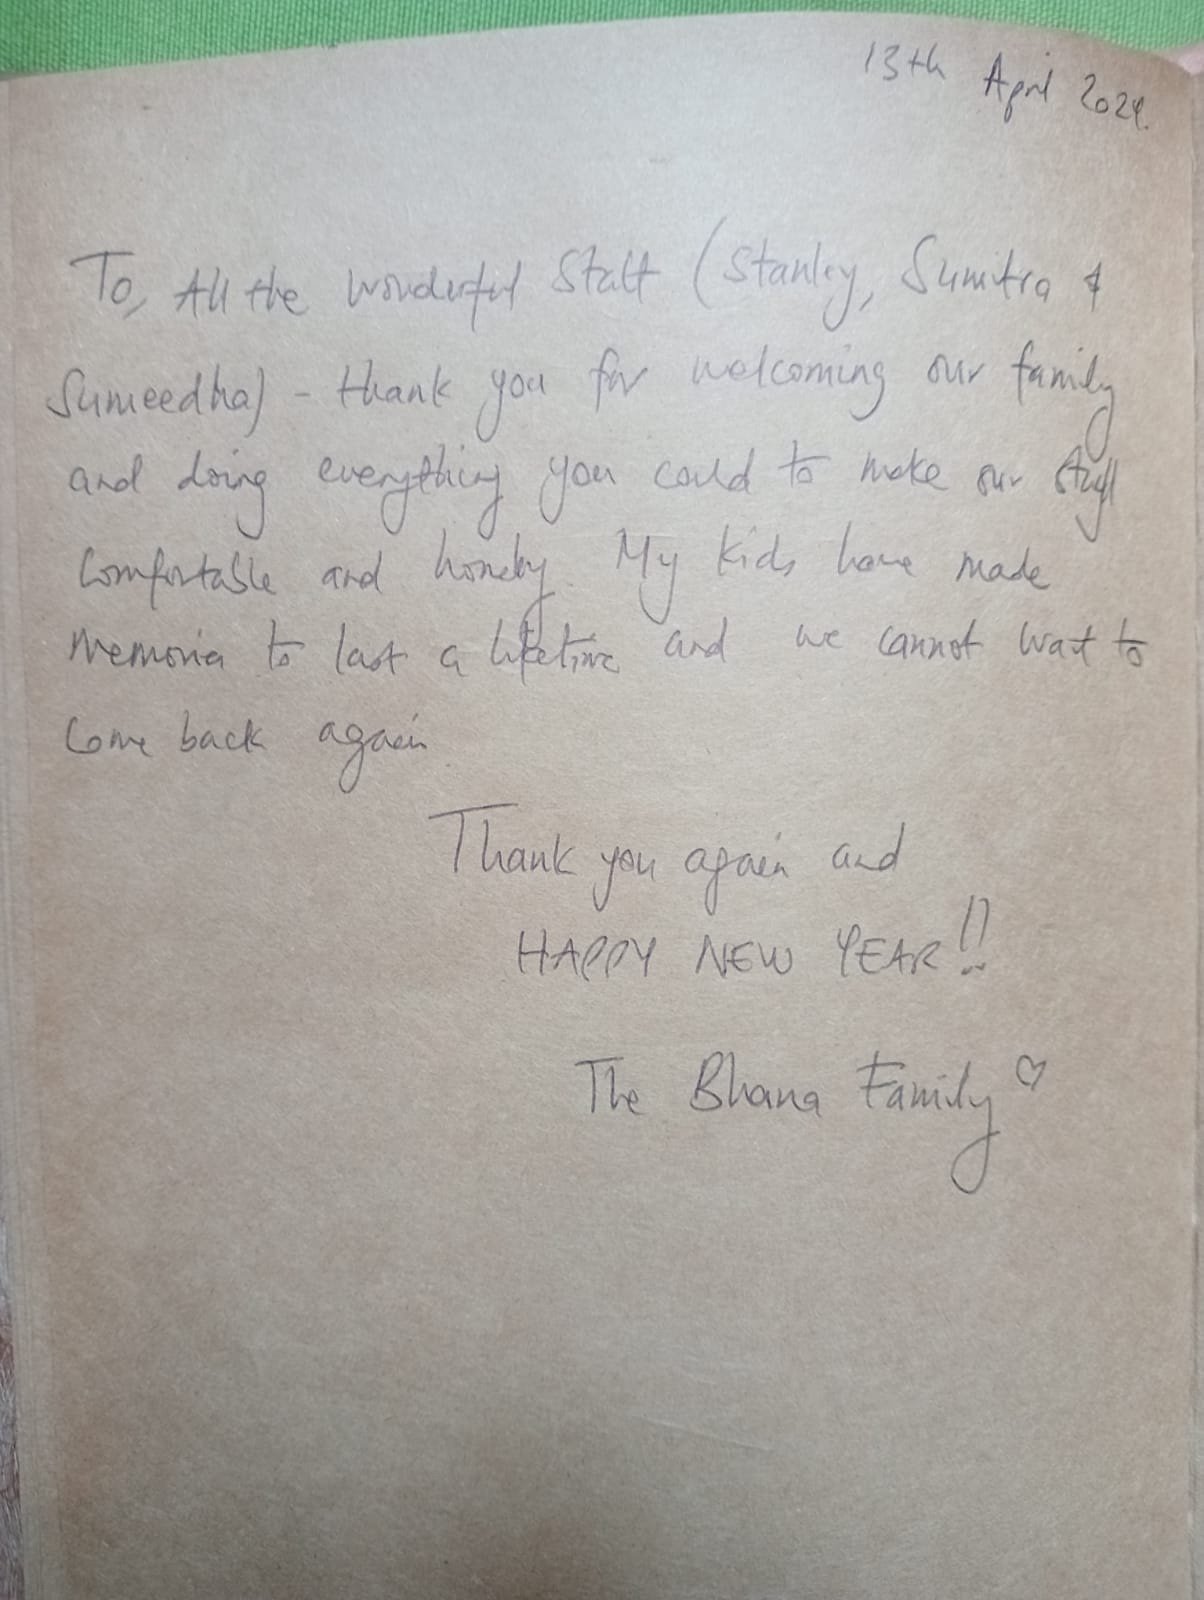 13th April 2024.
To, All the wonderful Staff (Stanley, Sumitra &
Sumeedha) - thank you for welcoming our family
and doing everything you could to make our stay
comfortable and homely. My kids have made
memories to last a lifetime and we cannot wait to
come back again
Thank you again and
HAPPY NEW YEAR!!
The Bhana Family ♡